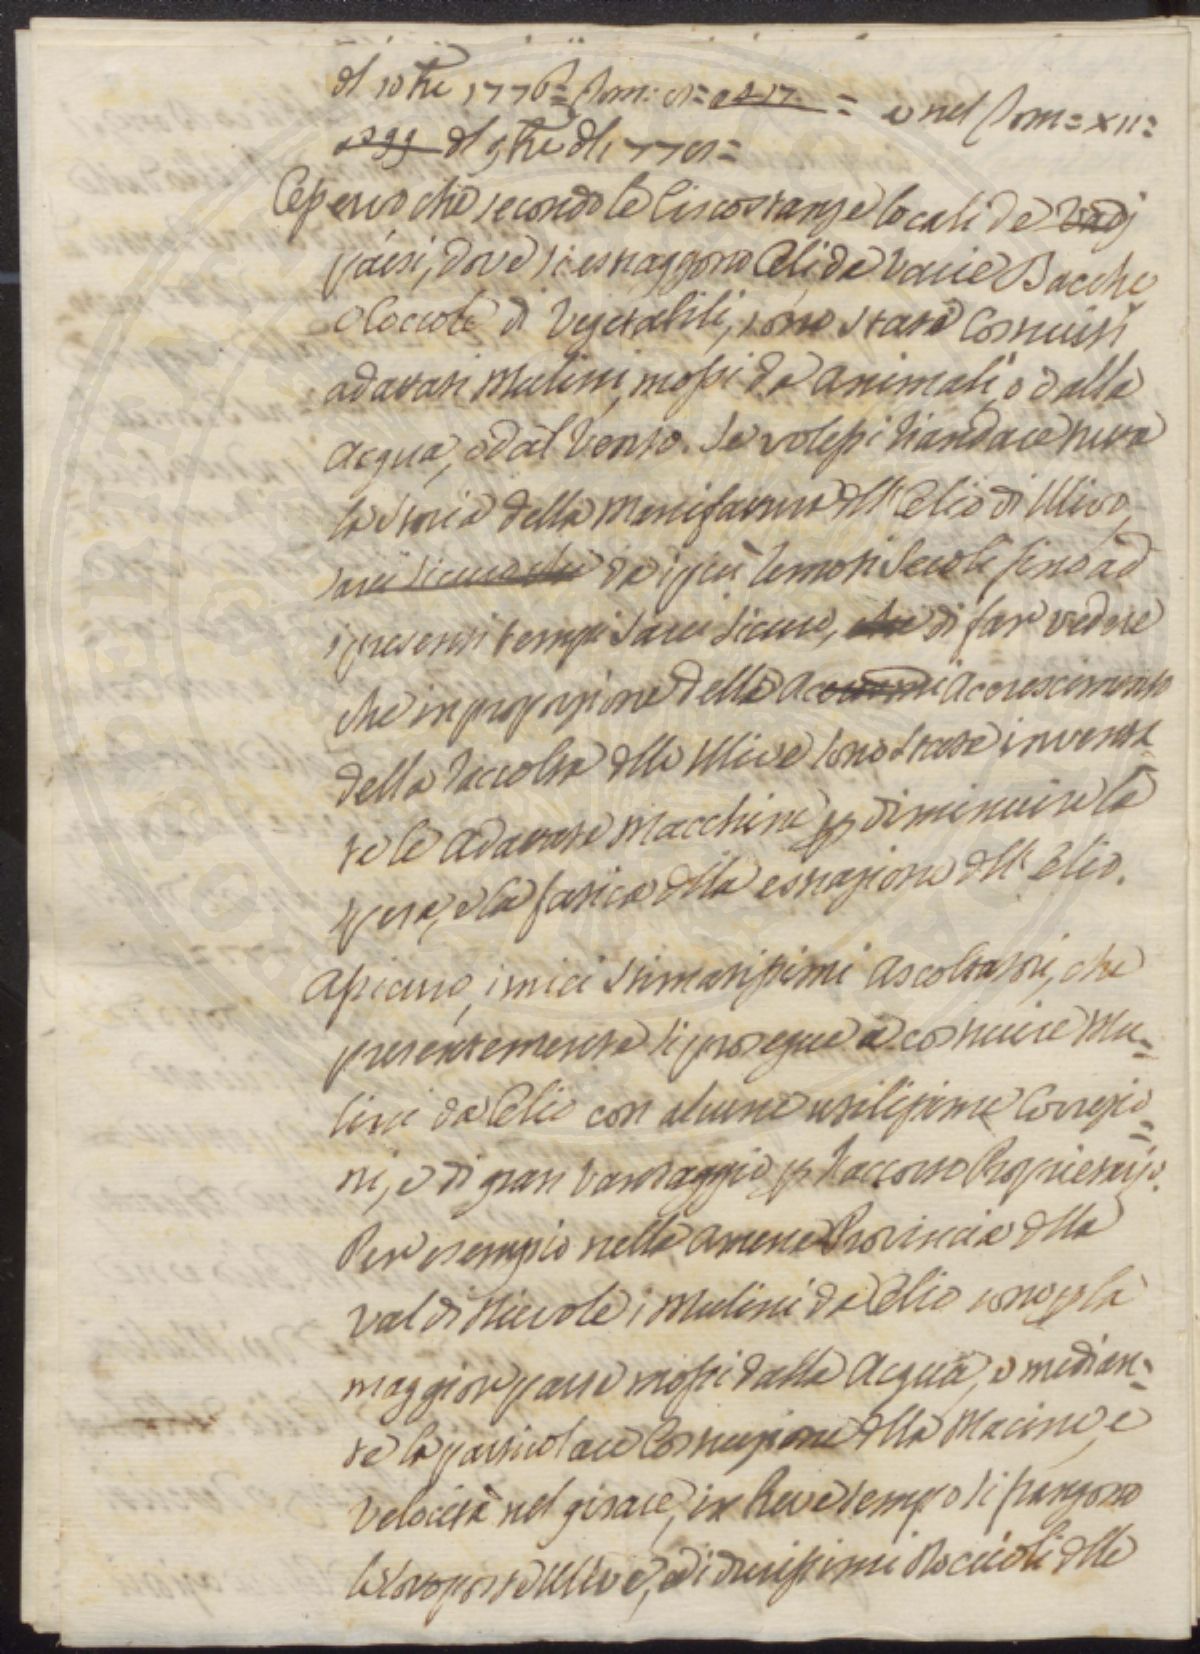 di 10bre 1776= Tom: 
e nel Tom= XII=
di 9bre di 1778=
E perciò che secondo le Circostanze locali de varj
paesi, dove si estraggono Olii da varie Bacche
o Coccole di Vegetabili, sono state Costruiti
adattati Mulini, mossi da animali, o dalla
acqua, o dal Vento. Se volessi riandare tutta
la Storia della Manifattura dell' Olio di Ulivo,
sarei sicuro che da i più remoti Secoli fino ad
i presenti tempi sarei sicuro, che di far vedere
che in proporzione della accrescimento
della raccolta delle Ulive sono state inventa=
te le adattate Macchine per diminuire la
spesa, e la fatica della estrazione dell' Olio.
Assicuro, i miei stimatissimi ascoltatori, che
presentemente si prosegue a costruire Mu=
lini da Olio con alcune utilissime Correzio=
ni, e di gran vantaggio per Proprietarj.
Per esempio nella amena Provincia della
Val di Nievole i Mulini da Olio sono per la
maggior parte mossi dalla acqua, e median=
te la particolare Costruzione della Macine, e
velocità nel girare, in breve tempo si frangono
le Ulive, ed i durissimi Noccioli delle